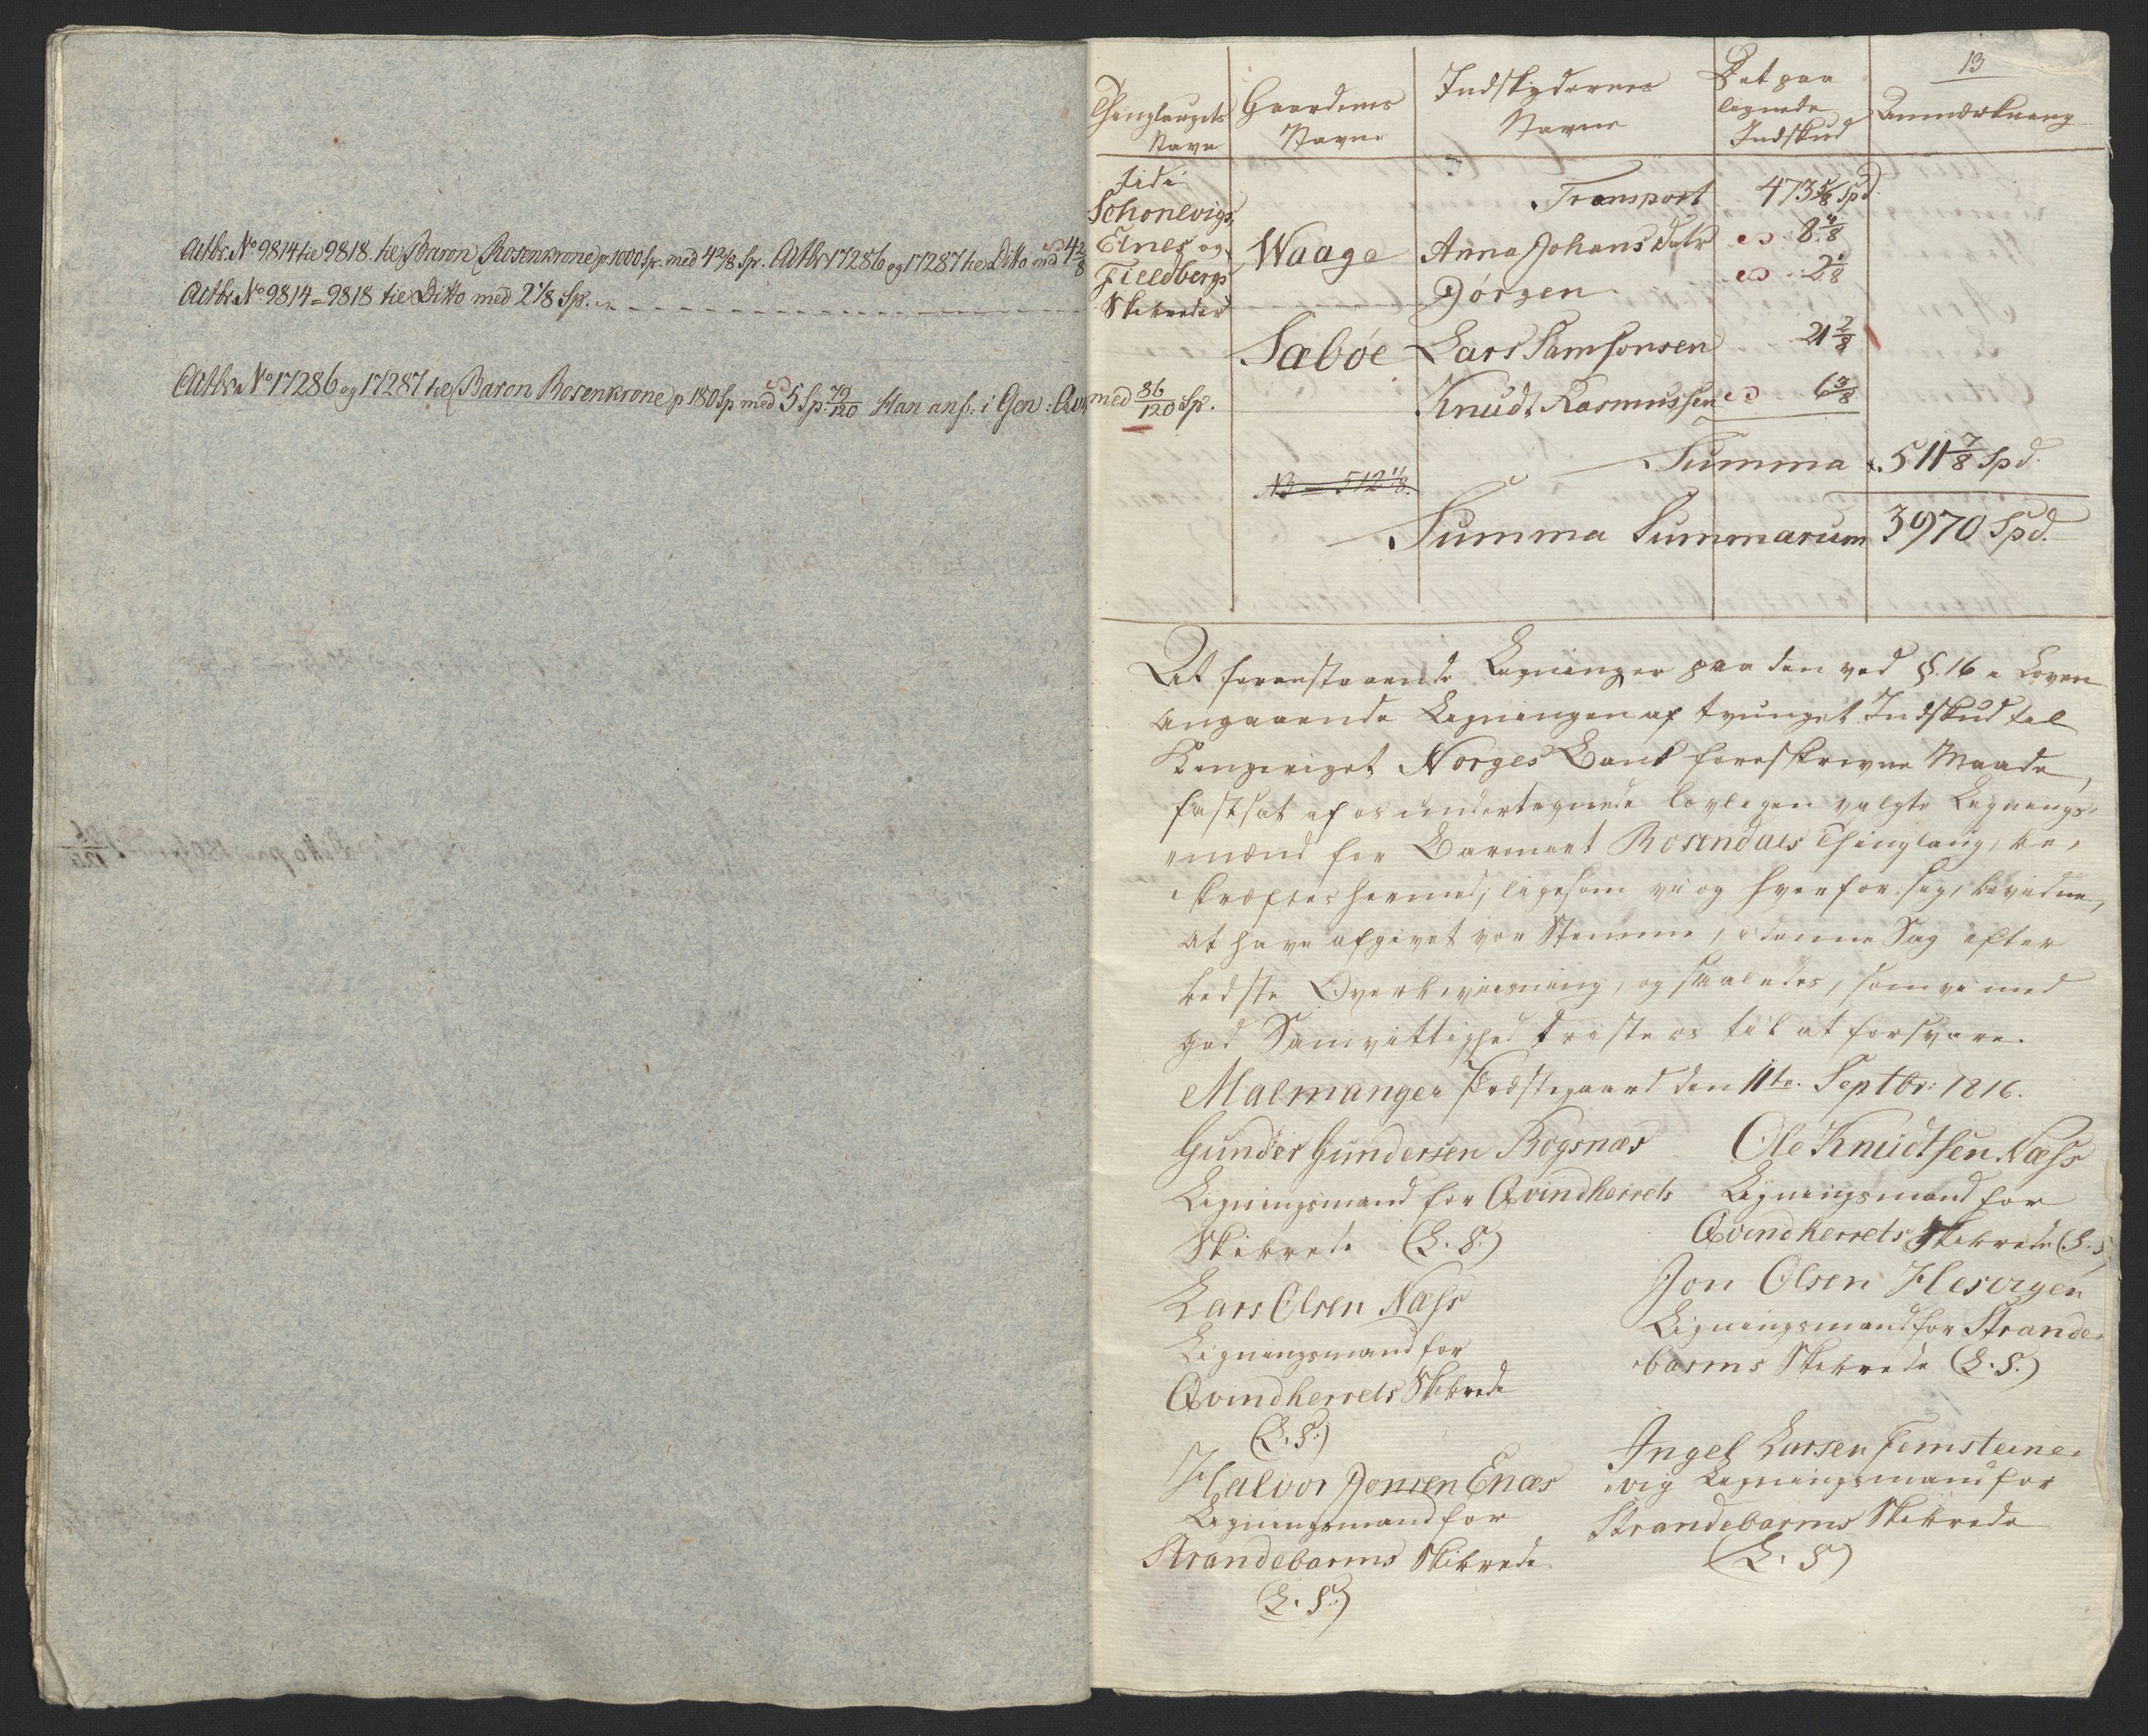 Actbr. No 9814 til 9818 til Baron Rosenkrone p 1000 Sp. med 4 2/8 Sp. Actbr 17286 og 17287 til Ditto md 4 2/8
Actbr. No 9814 = 9818 til Ditto med 2 1/8 Sp.
Actbr. No 17286 og 17287 til Baron Rosenkrone p 180 Sp med 5 Sp. 79/120 Han anf: i Gen: med 86/120 Sp.
13
Thinglaugets Navn
Gaardenes Navne
Indskydernes Navne
Det paa lignede Indskud
Anmærkning
Schonevigs,
Etnes og
Fieldbergs
Skibreder
Transport 473 5/8 Spd.
Waage Anna Johans Datr 8 4/8
Jørgen 2 1/8
Sæbøe Lars Samsonsen 21 2/8
Knudt Rasmussen 6 3/8
Summa 511 7/8 Spd.
NB = 512 4/8.
Summa Summarum 3970 Spd.
At foranstaaende Ligninger paa den ved §. 16 i Loven
angaaende Ligningen af tvunget Indskud til
Kongeriget Norges Bank foreskrevne Maade,
fastsat af os undertegnede lovligen valgte Lignings-
mænd for Baroniet Rosendals Thinglaug, be-
kræftes hermed; ligesom vi og hver for sig, bevidne,
at have afgivet vor Stemme, i denne Sag efter
bedste Overbeviisning, og saaledes, som vi med
god Samvittighed trøste os til at forsvare.
Malmanger Præstegaard den 11te Septbr: 1816.
Gunder Gundersen Rogsnæs
Ligningsmand for Qvindherrets
Skibrede (L. S.)
Ole Knudtsen Næss
Ligningsmand for
Qvindherrets Skibrede (L. S.)
Lars Olsen Næss
Ligningsmand for
Qvindherrets Skibrede
(L. S.)
Jon Olsen Hesvigen
Ligningsmand for Strande-
barms Skibrede (L. S.)
Halvor Jonsen Enæs
Ligningsmand for
Strandebarms Skibrede
(L. S.)
Ingel Larsen Femsteine-
vig Ligningsmand for
Strandebarms Skibrede
(L. S)